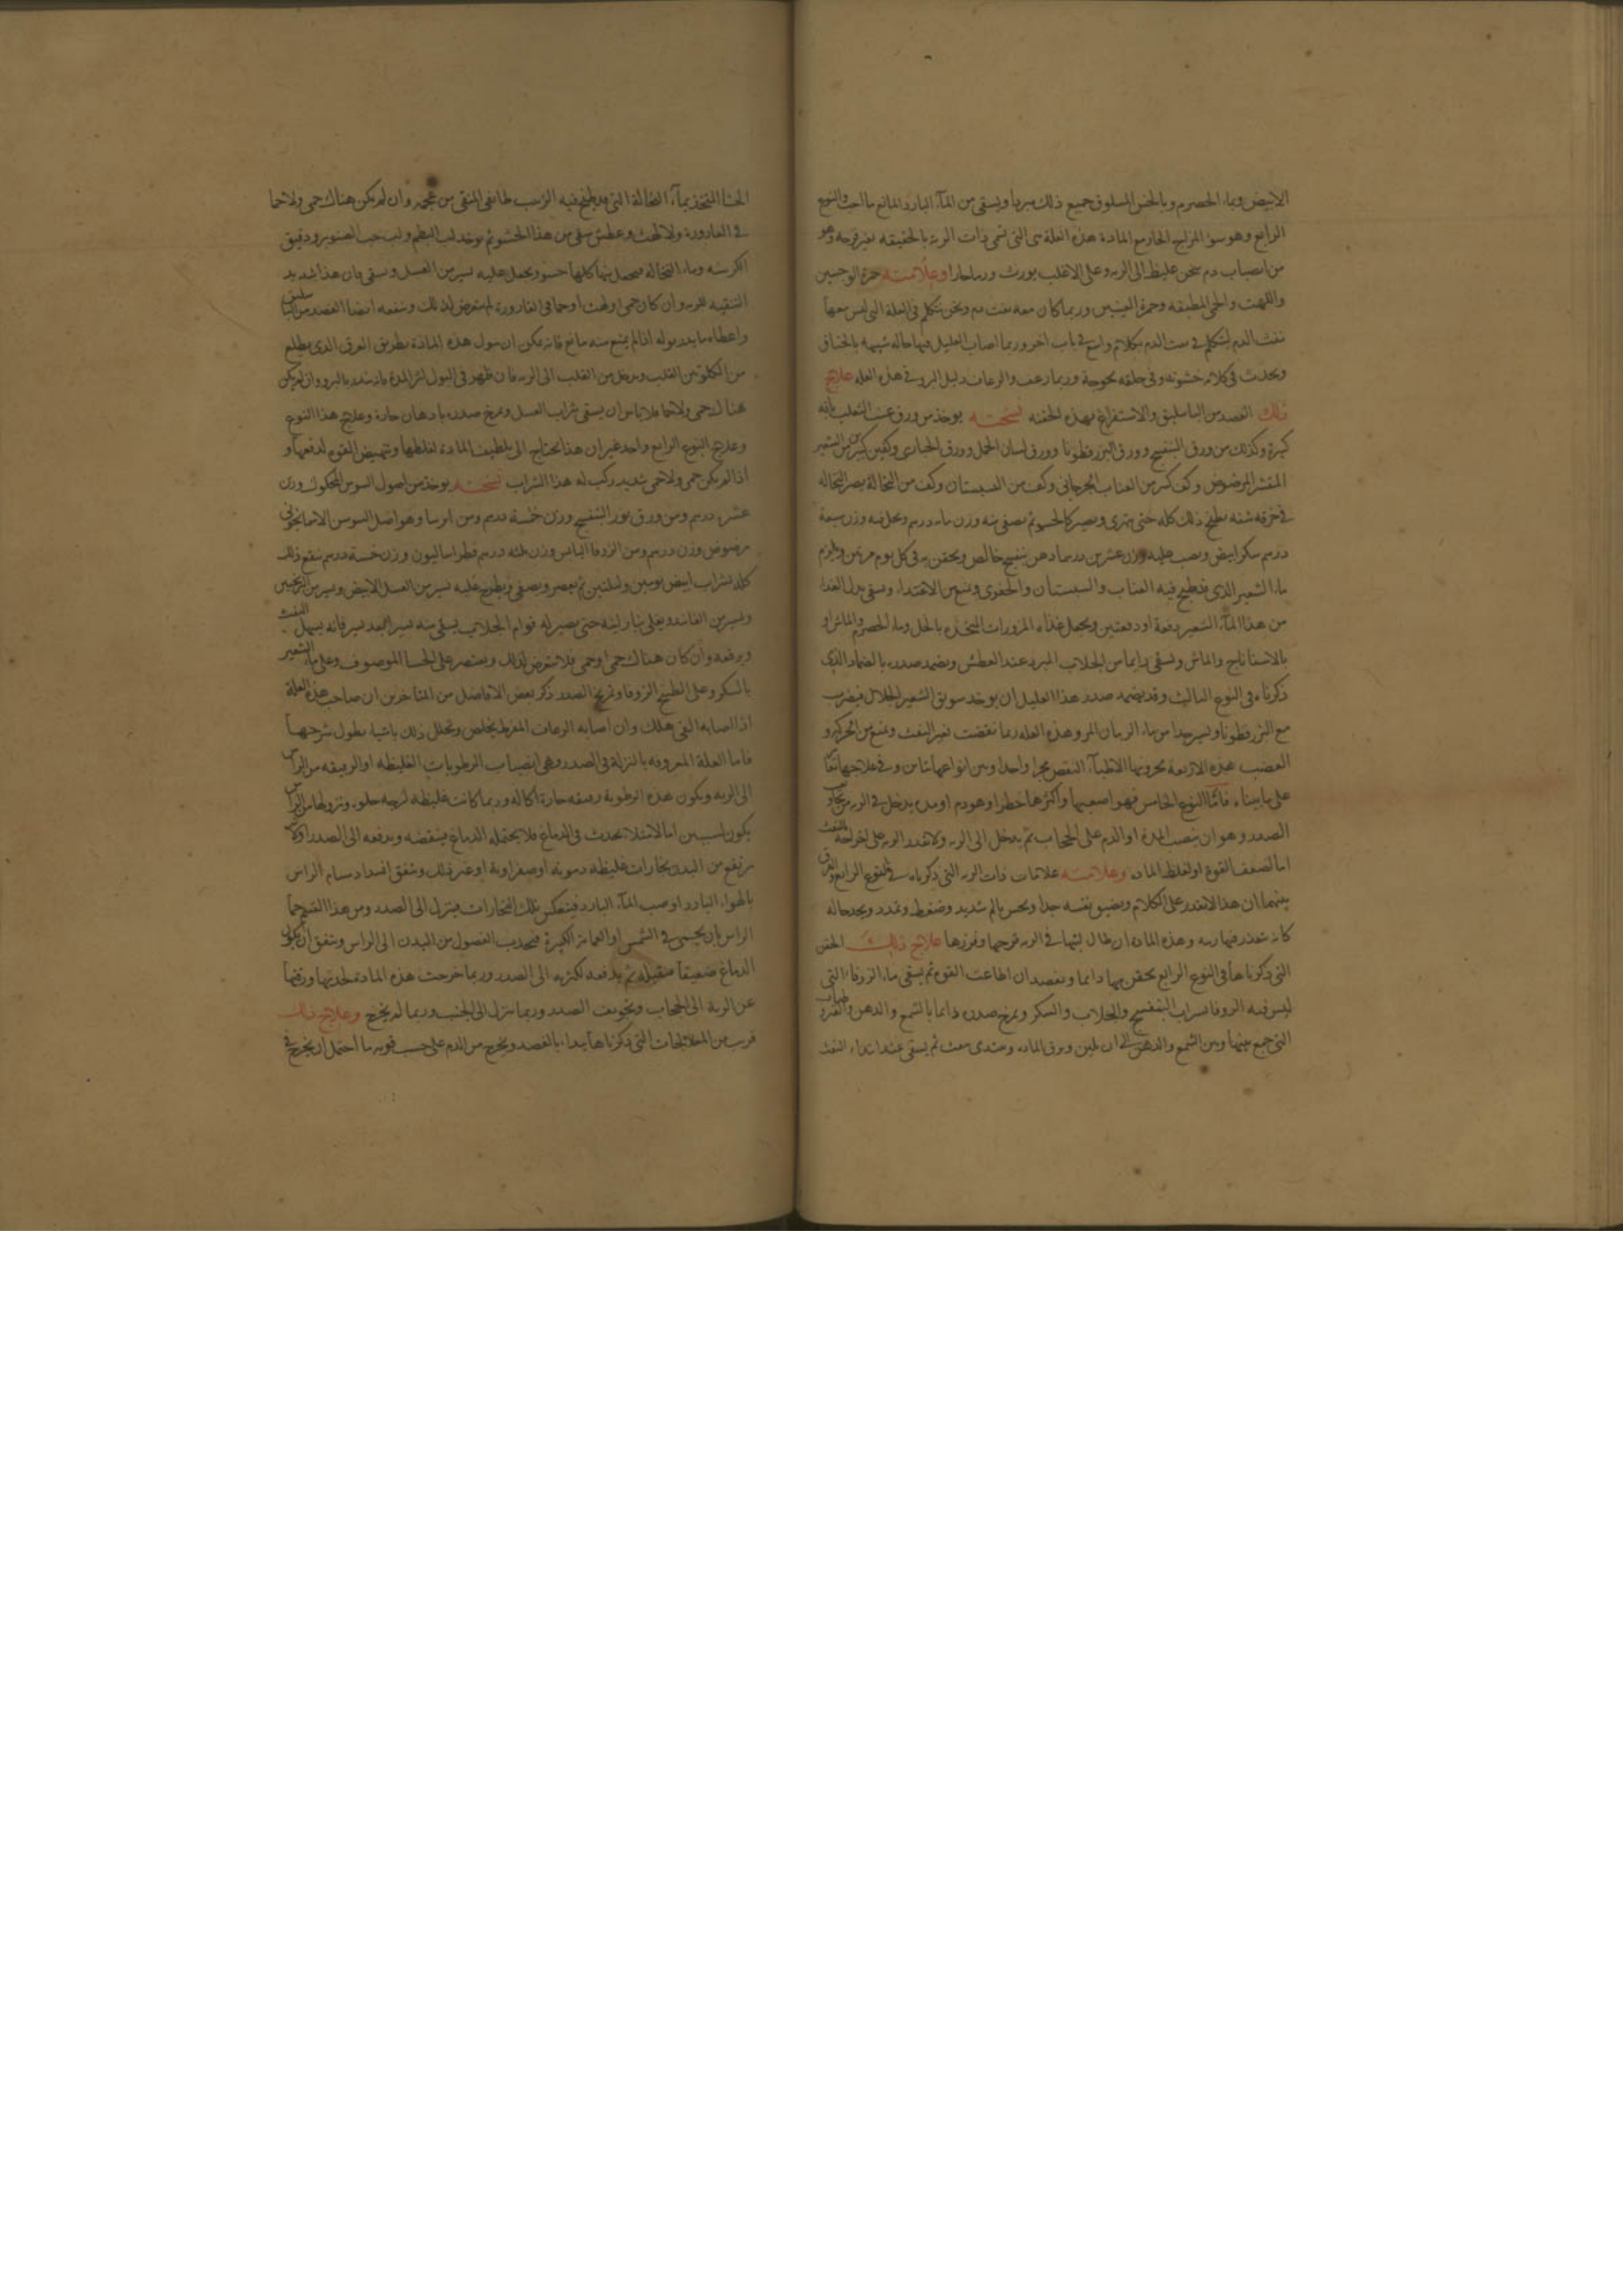 الابيض وبماء الحصرم وبالخس المسلوق جميع ذلك مبردا ويسقى من الماء البارد المانع ما احب والنوع
الرابع وهو سوء المزاج الحار مع المادة هذه العلة هى التى تسمى ذات الرية بالحقيقة بغير قرحة وهو
من انصباب دم سخن غليظ الى الريه وعلى الاغلب يورث ورما حارا وعلامته حمرة الوجنتين
واللهث والحمى المطبقه وحمرة العينين وربما كان معه نفث دم ونحن نتكلم فى العلة التى ليس معها
نفث الدم لنتكلم فى نفث الدم بكلام واسع فى باب اخر وربما اصاب العليل فيها حاله شبيهه بالخناق
ويحدث فى كلامه خشونه وفى حلقه بحوحة وربما رعف والرعاف دليل البرو فى هذه العله علاج
ذلك الفصد من الباسليق والاستفراغ بهذه الحقنه نسخته يوخذ من ورق عنب الثعلب باقة
كبيرة وكذلك من ورق البنفسج وورق البزرقطونا وورق لسان الحمل وورق الخبازى وكفين كبيرين من الشعير
المقشر المرضوض وكف كبير من العناب الجرجانى وكف من السبستان وكف من النخالة يصر النخاله
فى خرقه يطبخ ذلك كله حتى يتهرى ويصير كالحسو ثم يصفى منه وزن مائه درهم ويحل فيه وزن سبعة
درهم سكر ابيض ويصب عليه وزن عشرين درهما دهن بنفسج خالص ويحقن به فى كل يوم مرتين ويلزم
ماء الشعير الذى قد طبخ فيه العناب والسبستان ويمنع من الاغتذاء ويسقى بدل الغذاء
من هذا الماء الشعير دفعة او دفعتين ويجعل غذاء المزورات المتخذه بالخل وماء الحصرم والماش او
بالاسفاناج والماش ويسقى دايما من الجلاب المبرد عند العطش ويضمد صدره بالضماد الذى
ذكرناه فى النوع الثالث وقد يضمد صدر هذا العليل ان يوخذ سويق الشعير فيضرب
مع البزرقطونا ويسير جدا من ماء الرمان المر وهذه العله ربما نقضت بغير النفث ويمنع من الحركه و
الغضب هذه الاربعة يجرونها الاطباء النقص مجرا واحدا وبين انواعها تباين وفى علاجها ايضا
على ما بيناه فاما النوع الخامس فهو اصعبها واكثرها خطرا وهو دم او مده يدخل فى الريه من تجاويف
الصدر وهو ان ينصب المدة او الدم على الحجاب ثم يدخل الى الريه ولا تقدر الريه على اخراجه بالنفث
اما لضعف القوة او لغلظ الماده وعلامته علامات ذات الريه التى ذكرناه فى النوع الرابع والفرق
بينهما ان هذا لا يقدر على الكلام ويضيق نفسه جدا ويحس بالم شديد وضغط وتمدد ويجد حاله
كانه وهذه الماده ان طال لبثها فى الريه قرحها علاج ذلك الحقن
التى ذكرناها فى النوع الرابع يحقن بها دايما ويفصد ان اطاعت القوه ثم يسقى ماء الزوفا التى
ليس فيه الزوفا بشراب البنفسج والجلاب والسكر ويمرخ صدره دايما بالشمع والدهن والقيروطيات
التى جمع بينها وبين الشمع والدهن الى ان تلين وترق الماده ويبتدى ينفث ثم يسقى عند ابتداء النفث
الحسا المتخذ بماء النخالة التى قد طبخ فيه الزبيب الطايفى المنقى من عجمه وان لم يكن هناك حمى ولا حما
فى القارورة ولا لهث وعطش سقى من هذا الحسو ثم يوخذ لب البطم ولب حب الصنوبر ودقيق
الكرسنه وماء النخاله فيعمل منها كلها حسو ويجعل عليه يسير من العسل ويسقى فان هذا شديد
التنقيه للريه وان كان حمى او لهث او حما فى القارورة لم يتعرض لذلك وينفعه ايضا الفصد من الباسليق
واعطاه ما يدر بوله اذا لم يمنع منه مانع فانه يمكن ان يبول هذه المادة بطريق العرق الذى يطلع
من الكلوتين الى القلب ويدخل من القلب الى الريه فان ظهر فى البول اثر المدة فانه ينذر بالبرو وان لم يكن
هناك حمى ولا حما فلا باس ان يسقى شراب العسل ويمرخ صدره بادهان حارة وعلاج هذا النوع
وعلاج النوع الرابع واحد غير ان هذا يحتاج الى تلطيف المادة لغلظها وتنهيض القوه لدفعها و
اذا لم يكن حمى ولا حمى شديد ركب له هذا الشراب نسخته يوخذ من اصول السوس المحكوك وزن
عشر درهم ومن ورق نور البنفسج وزن خمسة درهم ومن ايرسا وهو اصل السوسن الاسمانجونى
مرضوض وزن درهم ومن الزوفا اليابس وزن ثلثه درهم فطراساليون وزن خمسة درهم ينقع ذلك
كله بشراب ابيض يومين وليلتين ثم يعصر ويصفى ويطرح عليه يسير من العسل الابيض ويسير من الترنجبين
ويسير من الفانيد ويغلى بنار لينه حتى يصير له قوام الجلاب يسقى منه يسير بعد يسير فانه يسهل النفث
ويرفعه وان كان هناك حمى او حمى فلا يتعرض لذلك ويقتصر على الحسا الموصوف وعلى ماء الشعير
بالسكر وعلى الطبيخ الزوفا وتمريخ الصدر ذكر بعض الافاضل من المتاخرين ان صاحب هذه العلة
اذا اصابه القى هلك وان اصابه الرعاف المفرط يخلص وتعلل ذلك باشيا يطول شرحها
فاما العلة المعروفه بالنزلة فى الصدر وهى انصباب الرطوبات الغليظه او الرقيقه من الراس
الى الريه وتكون هذه الرطوبة رقيقه حارة اكاله وربما كانت غليظه لزجه حلوه ونزولها من الراس
يكون لسببين اما لامتلاء يحدث فى الدماغ فلا يحتمله الدماغ فينفضه ويدفعه الى الصدر او
يرتفع من البدن بخارات غليظه دمويه او صفراوية او غير ذلك ويتفق انسداد مسام الراس
بالهواء البارد او صب الماء البارد فينعكس تلك البخارات فينزل الى الصدر ومن هذا القسم حما
الراس بان يحمى فى الشمس او العمامة الكبيرة فيجذب الفضول من البدن الى الراس ويتفق ان يكون
الدماغ ضعيفا فيقبله ثم يدفعه لكثرته الى الصدر وربما خرجت هذه المادة لحدتها ورقتها
عن الرية الى الحجاب وتجويف الصدر وربما نزل الى الجنب وربما لم يخرج وعلاج ذلك
قريب من المعالجات التى ذكرناها يبداء بالفصد ويخرج من الدم على حسب قوته ما احتمل ان يخرج فى